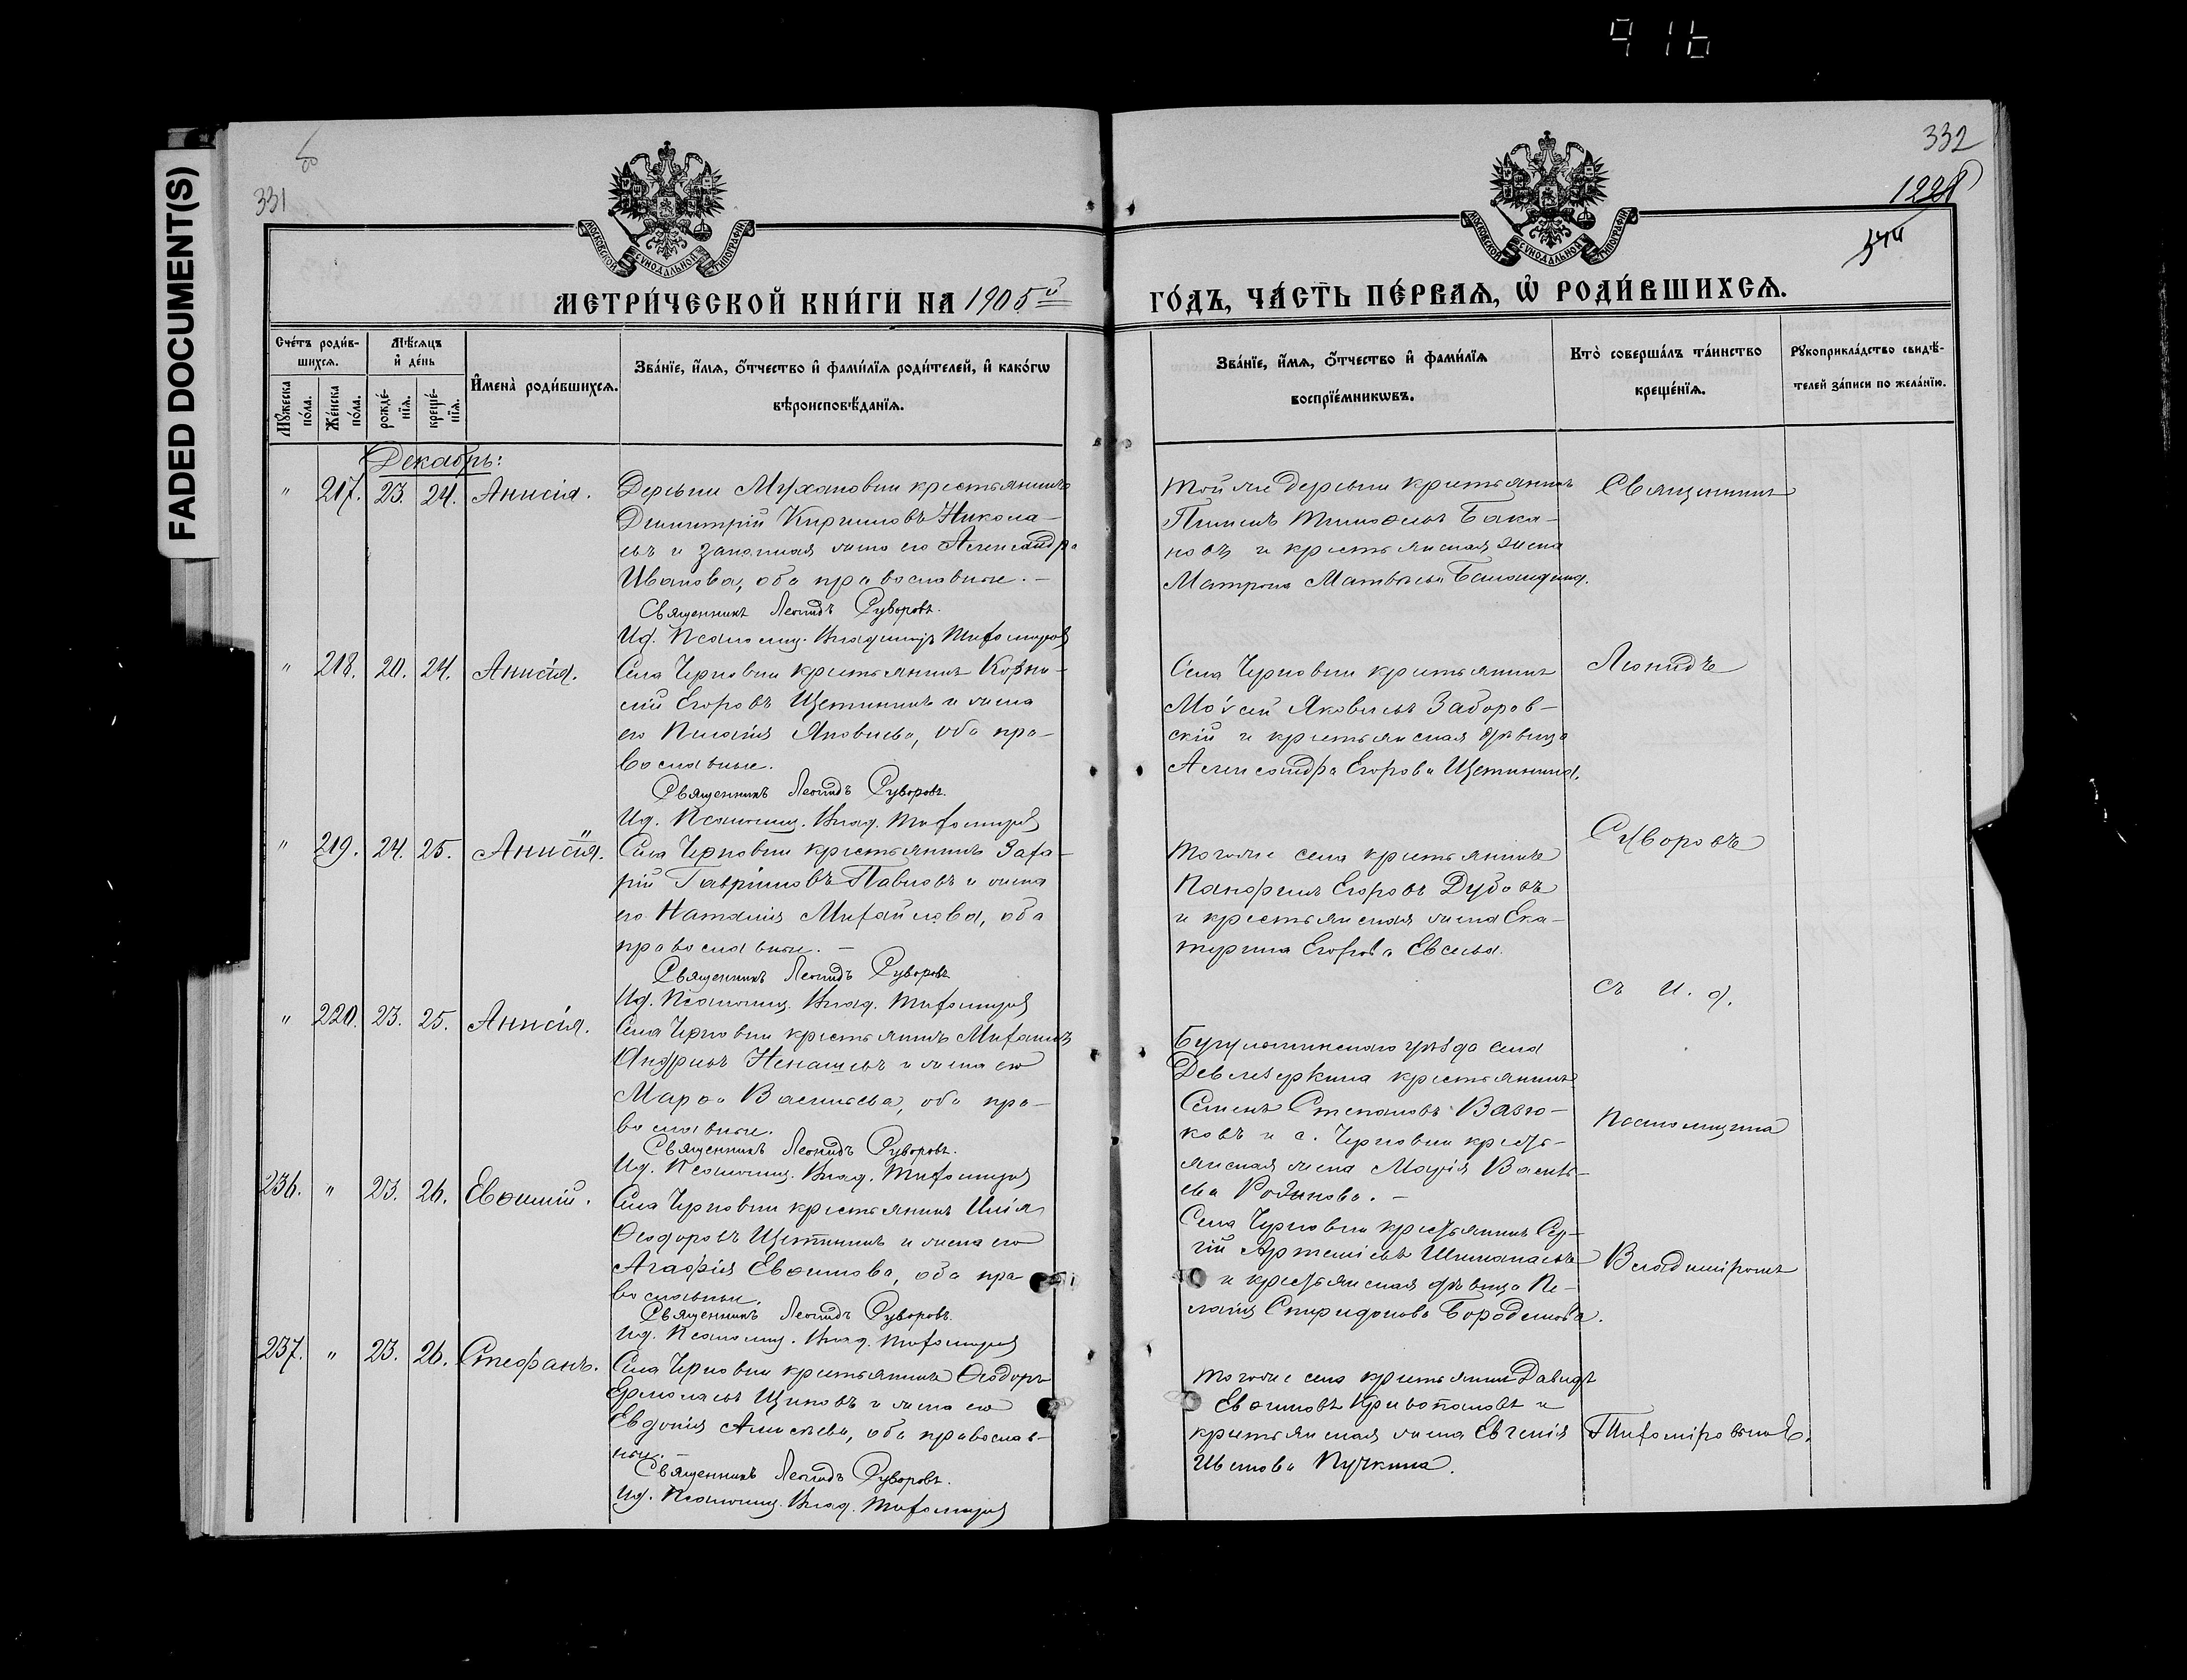 916
FADED DOCUMENT(S)
331
332
1228
МОСКОВСКОЙ СУНОДАЛЬНОЙ ТИПОГРАФІИ
МОСКОВСКОЙ СУНОДАЛЬНОЙ ТИПОГРАФІИ
МЕТРИ́ЧЕСКОЙ КНИ́ГИ НА 1905 й
ГО́ДЪ, ЧА́СТЬ ПЕ́РВАѦ, Ѡ РОДИ́ВШИХСѦ.
Сче́тъ роди́в-
шихсѧ.
Мѣ́сѧцъ
и҆ де́нь
Мꙋ́жеска
по́ла.
Же́нска
по́ла.
рожде́-
нїѧ.
креще́-
нїѧ.
И҆мена̀ роди́вшихсѧ.
Зва́нїе, и҆́мѧ, ѻ҆́тчество и҆ фами́лїѧ роди́телей, и҆ како́гѡ
вѣроисповѣ́данїѧ.
Зва́нїе, и҆́мѧ, ѻ҆́тчество и҆ фами́лїѧ
воспрїе́мникѡвъ.
Кто̀ соверша́лъ та́инство
креще́нїѧ.
Рꙋкоприкла́дство свидѣ́-
телей за́писи по жела́нїю.
Декабрь:
" 217. 23. 24. Анисія.
Деревни Мухановки крестьянинъ
Димитрій Кирилловъ Никола-
евъ и законная жена его Александра
Иванова, оба православные. —
Священникъ Леонидъ Суворовъ.
Ид. Псаломщ. Владиміръ Тихомировъ
Той же деревни крестьянинъ
Пименъ Тимоѳеевъ Бака-
новъ и крестьянская жена
Матрона Матвѣева Баландина.
Священникъ
" 218. 20. 24. Анисія.
Села Черновки крестьянинъ Корни-
лій Егоровъ Щетининъ и жена
его Пелагія Яковлева, оба пра-
вославные.
Священникъ Леонидъ Суворовъ.
Ид. Псаломщ. Влад. Тихомировъ
Села Черновки крестьянинъ
Моѵсей Яковлевъ Заборов-
скій и крестьянская дѣвица
Александра Егорова Щетинина.
Леонидъ
" 219. 24. 25. Анисія.
Села Черновки крестьянинъ Заха-
рій Гавріиловъ Павловъ и жена
его Наталія Михайлова, оба
православные. —
Священникъ Леонидъ Суворовъ
Ид. Псаломщ. Влад. Тихомировъ
Того же села крестьянинъ
Панфилъ Егоровъ Дубовъ
и крестьянская жена Ека-
терина Егорова Евсеева.
Суворовъ
съ И. д.
" 220. 23. 25. Анисія.
Села Черновки крестьянинъ Михаилъ
Андреевъ Ненашевъ и жена его
Марѳа Васильева, оба пра-
вославные.
Священникъ Леонидъ Суворовъ.
Ид. Псаломщ. Влад. Тихомировъ
Бугульминскаго уѣзда села
Девлезеркина крестьянинъ
Семенъ Степановъ Вазю-
ковъ и с. Черновки кресть-
янская жена Марія Василь-
ева Родинова. —
Псаломщика
236. " 23. 26. Евѳимій.
Села Черновки крестьянинъ Илія
Ѳеодоровъ Щетининъ и жена его
Агафія Евѳимова, оба пра-
вославные.
Священникъ Леонидъ Суворовъ.
Ид. Псаломщ. Влад. Тихомировъ
Села Черновки крестьянинъ Сер-
гій Артеміевъ
и крестьянская дѣвица Пе-
лагія Спиридонова Бородинова.
Владиміромъ
237. " 23. 26. Стефанъ.
Села Черновки крестьянинъ Ѳеодоръ
Ермолаевъ Щиновъ и жена его
Евдокія Алексѣева, оба православ-
ные. —
Священникъ Леонидъ Суворовъ.
Ид. Псаломщ. Влад. Тихомировъ
Того же села крестьянинъ Давидъ
Евѳимовъ Кривопаловъ и
крестьянская жена Евгенія
Ивлева Пучкина.
Тихомировымъ.